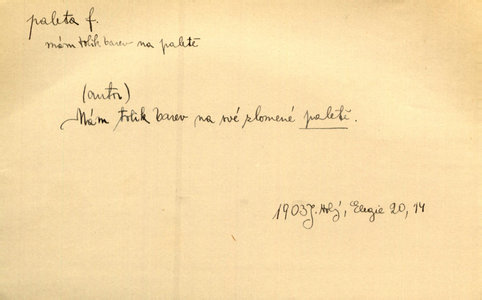 paleta f.
mám tolik barev na paletě
(autor)
Mám tolik barev na své zlomené paletě.
1903 J. Holý, Elegie 20, 14